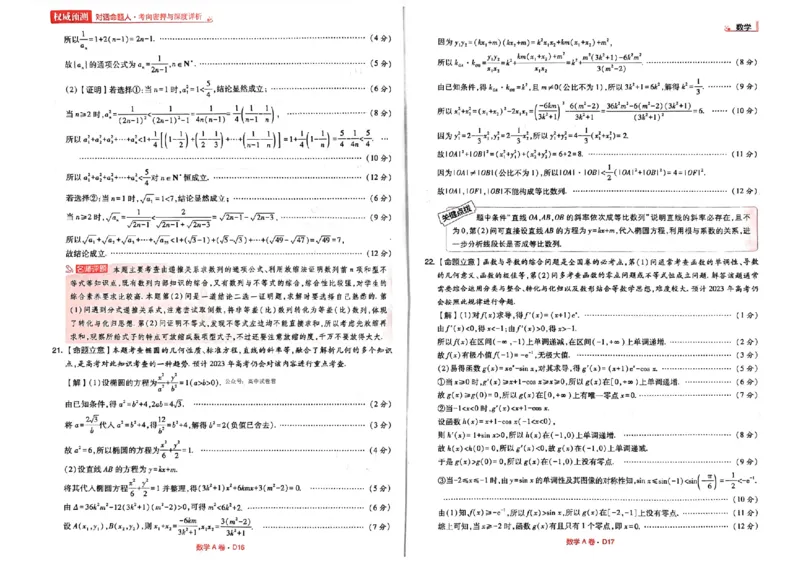 权威预测 对话命题人·考向密押与深度评析
所以1/aₙ=1+2(n-1)=2n-1. (4分)
故{aₙ}的通项公式为aₙ=1/(2n-1),n∈N*. (5分)
(2)【证明】若选择①:当n=1时,a₁²=1<5/4,结论显然成立; (6分)
当n≥2时,aₙ²=1/(2n-1)²<1/((2n-1)²-1)=1/(4n(n-1))=1/4(1/(n-1)-1/n), (8分)
所以a₁²+a₂²+a₃²+…+aₙ²<1+1/4[(1-1/2)+(1/2-1/3)+…+(1/(n-1)-1/n)]=1+1/4(1-1/n)=5/4-1/4n<5/4. …
(10分)
所以a₁²+a₂²+a₃²+…+aₙ²<5/4对n∈N*恒成立. (12分)
若选择②:当n=1时,√a₁=1<7,结论显然成立; (6分)
当n≥2时,√aₙ=1/√(2n-1)<2/(√(2n-1)+√(2n-3))=√(2n-1)-√(2n-3). (9分)
所以√a₁+√a₂+√a₃+…+√aₙ<1+(√3-1)+(√5-√3)+…+(√49-√47)=√49=7,
故结论成立. (12分)
名师评题 本题主要考查由递推关系求数列的通项公式、利用放缩法证明数列前n项和型不
等式等知识点,既有数列内部知识的综合,又有数列与不等式的综合,综合性比较强,对学生的
综合素养要求比较高.本题第(2)问是一道结论二选一证明题,求解时要选择自己熟悉的.第
(1)问遇到分式递推关系式,注意尝试取倒数,将非等差(比)数列转化为等差(比)数列,体现
了转化与化归思想.第(2)问证明不等式,发现不等式左边均不能直接求和,所以考虑先放缩再
求和,观察所给式子的特点可放缩成裂项型式子,不过还要注意放缩的度,千万不要放得太大.
21.【命题立意】本题考查椭圆的几何性质、标准方程,直线的斜率等,融合了解析几何的多个知识
点,是高考对此知识考查的一种趋势.预计2023年高考仍会对该内容进行重点考查.
【解】(1)设椭圆的方程为x²/a²+y²/b²=1(a>b>0). 公众号:高中试卷君
由已知条件,得a²=b²+4,2ab=4√3. (2分)
将a=2√3/b代入a²=b²+4,得12/b²=b²+4,解得b²=2(负值已舍去). (3分)
故a²=6,所以椭圆的方程为x²/6+y²/2=1. (4分)
(2)设直线AB的方程为y=kx+m.
将其代入椭圆方程x²/6+y²/2=1并整理,得(3k²+1)x²+6kmx+3(m²-2)=0. (5分)
由Δ=36k²m²-12(3k²+1)(m²-2)>0,可得m²<6k²+2. (6分)
设A(x₁,y₁),B(x₂,y₂),则x₁+x₂=-6km/(3k²+1),x₁x₂=3(m²-2)/(3k²+1). (7分)
数学A卷·D16
数学
因为y₁y₂=(kx₁+m)(kx₂+m)=k²x₁x₂+km(x₁+x₂)+m²,
所以k_OA·k_OB=y₁y₂/x₁x₂=k²+(km(x₁+x₂)+m²)/x₁x₂=k²+(m²(3k²+1)-6k²m²)/3(m²-2). (8分)
由已知条件,得k_OA·k_OB=k²,且m≠0(公比不为1),所以3k²+1=6k²,解得k²=1/3. (9分)
所以x₁²+x₂²=(x₁+x₂)²-2x₁x₂=(-6km/(3k²+1))²-6(m²-2)/(3k²+1)=(36k²m²-6(m²-2)(3k²+1))/(3k²+1)²=6. (10分)
因为y₁²=2-1/3x₁²,y₂²=2-1/3x₂²,所以y₁²+y₂²=4-1/3(x₁²+x₂²)=2.
故|OA|²+|OB|²=(x₁²+y₁²)+(x₂²+y₂²)=6+2=8. (11分)
因为|OA|≠|OB|(公比不为1),所以|OA|·|OB|<1/2(|OA|²+|OB|²)=4=|OF|².
故|OA|,|OF|,|OB|不能构成等比数列. (12分)
关键点拨
题中条件“直线OA,AB,OB的斜率依次成等比数列”说明直线的斜率必存在,且不
为0.第(2)问可直接设直线AB的方程为y=kx+m,代入椭圆方程,利用根与系数的关系,进
一步分析线段长是否成等比数列.
22.【命题立意】函数与导数的综合问题是全国卷的必考点,第(1)问通常考查函数的单调性、导数
的几何意义、函数的极值等,第(2)问多考查函数的零点问题或不等式恒成立问题.解答该题通常
需要综合运用分类与整合、转化与化归以及数形结合等数学思想,难度较大.预计2023年高考仍
会按照此规律进行命题.
【解】(1)对f(x)求导,得f'(x)=(x+1)eˣ. (1分)
由f'(x)<0,得x<-1;由f'(x)>0,得x>-1.
所以f(x)在区间(-∞,-1)上单调递减,在区间(-1,+∞)上单调递增. (2分)
故f(x)有极小值f(-1)=-e⁻¹,无极大值. (3分)
(2)易得函数g(x)=xeˣ-sin x,对其求导,得g'(x)=(x+1)eˣ-cos x. (5分)
①当x≥0时,g'(x)≥x+1-cos x≥x≥0,所以g(x)在[0,+∞)上单调递增. (6分)
故g(x)≥g(0)=0,所以g(x)在[0,+∞)上有唯一零点x=0. (7分)
②当-1<x<0时,g'(x)<x+1-cos x.
设函数h(x)=x+1-cos x(-1<x<0),
则h'(x)=1+sin x>0,所以h(x)在(-1,0)上单调递增. (8分)
故h(x)<h(0)=0,所以g'(x)<0,故g(x)在(-1,0)上单调递减.
于是g(x)>g(0)=0,所以g(x)在(-1,0)上没有零点. (9分)
③当-2≤x≤-1时,由y=sin x的单调性及其图像的对称性知,sin x≤sin(-1)<sin(-π/6)=-1/2<-e⁻¹.
(10分)
由(1)知,f(x)≥-e⁻¹,所以f(x)>sin x,所以g(x)在[-2,-1]上没有零点. (11分)
综上可知,当x≥-2时,函数g(x)有且只有1个零点,即x=0. (12分)
数学A卷·D17